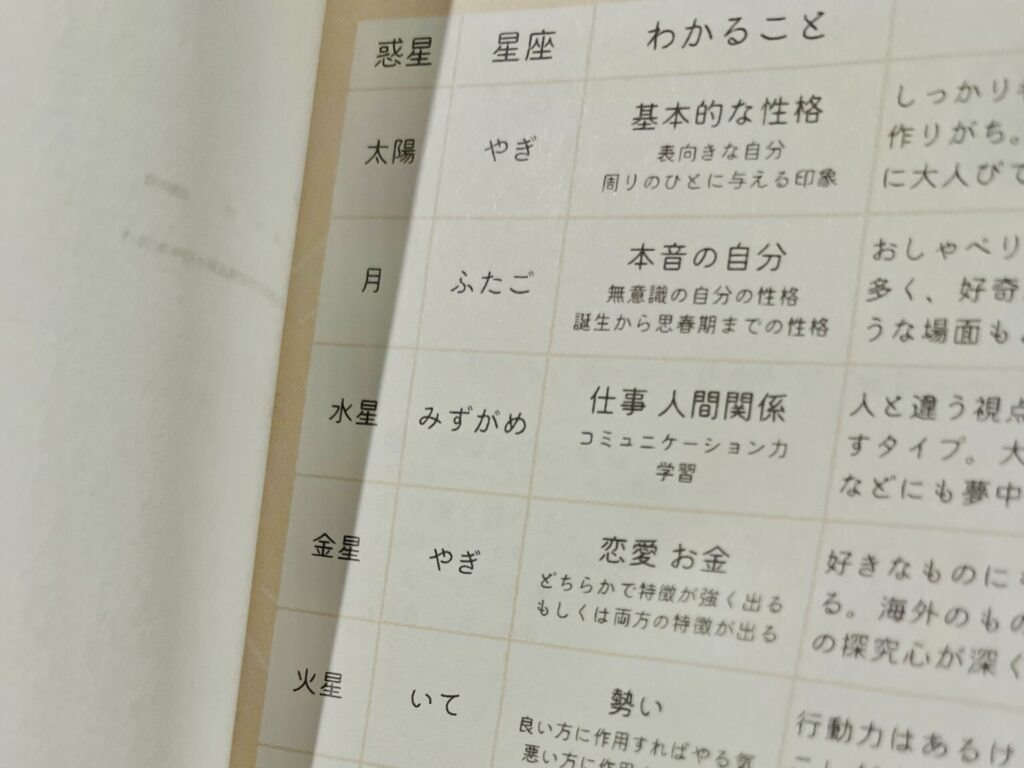 惑星 星座 わかること
太陽 やぎ 基本的な性格
表向きな自分
周りのひとに与える印象
しっかり
作りがち。
に大人びて
月 ふたご 本音の自分
無意識の自分の性格
誕生から思春期までの性格
おしゃべり
多く、好奇
うな場面も
水星 みずがめ 仕事 人間関係
コミュニケーション力
学習
人と違う視点
すタイプ。大
などにも夢中
金星 やぎ 恋愛 お金
どちらかで特徴が強く出る
もしくは両方の特徴が出る
好きなものに
る。海外のもの
の探究心が深く
火星 いて 勢い
良い方に作用すればやる気
悪い方に作用
行動力はあるけ